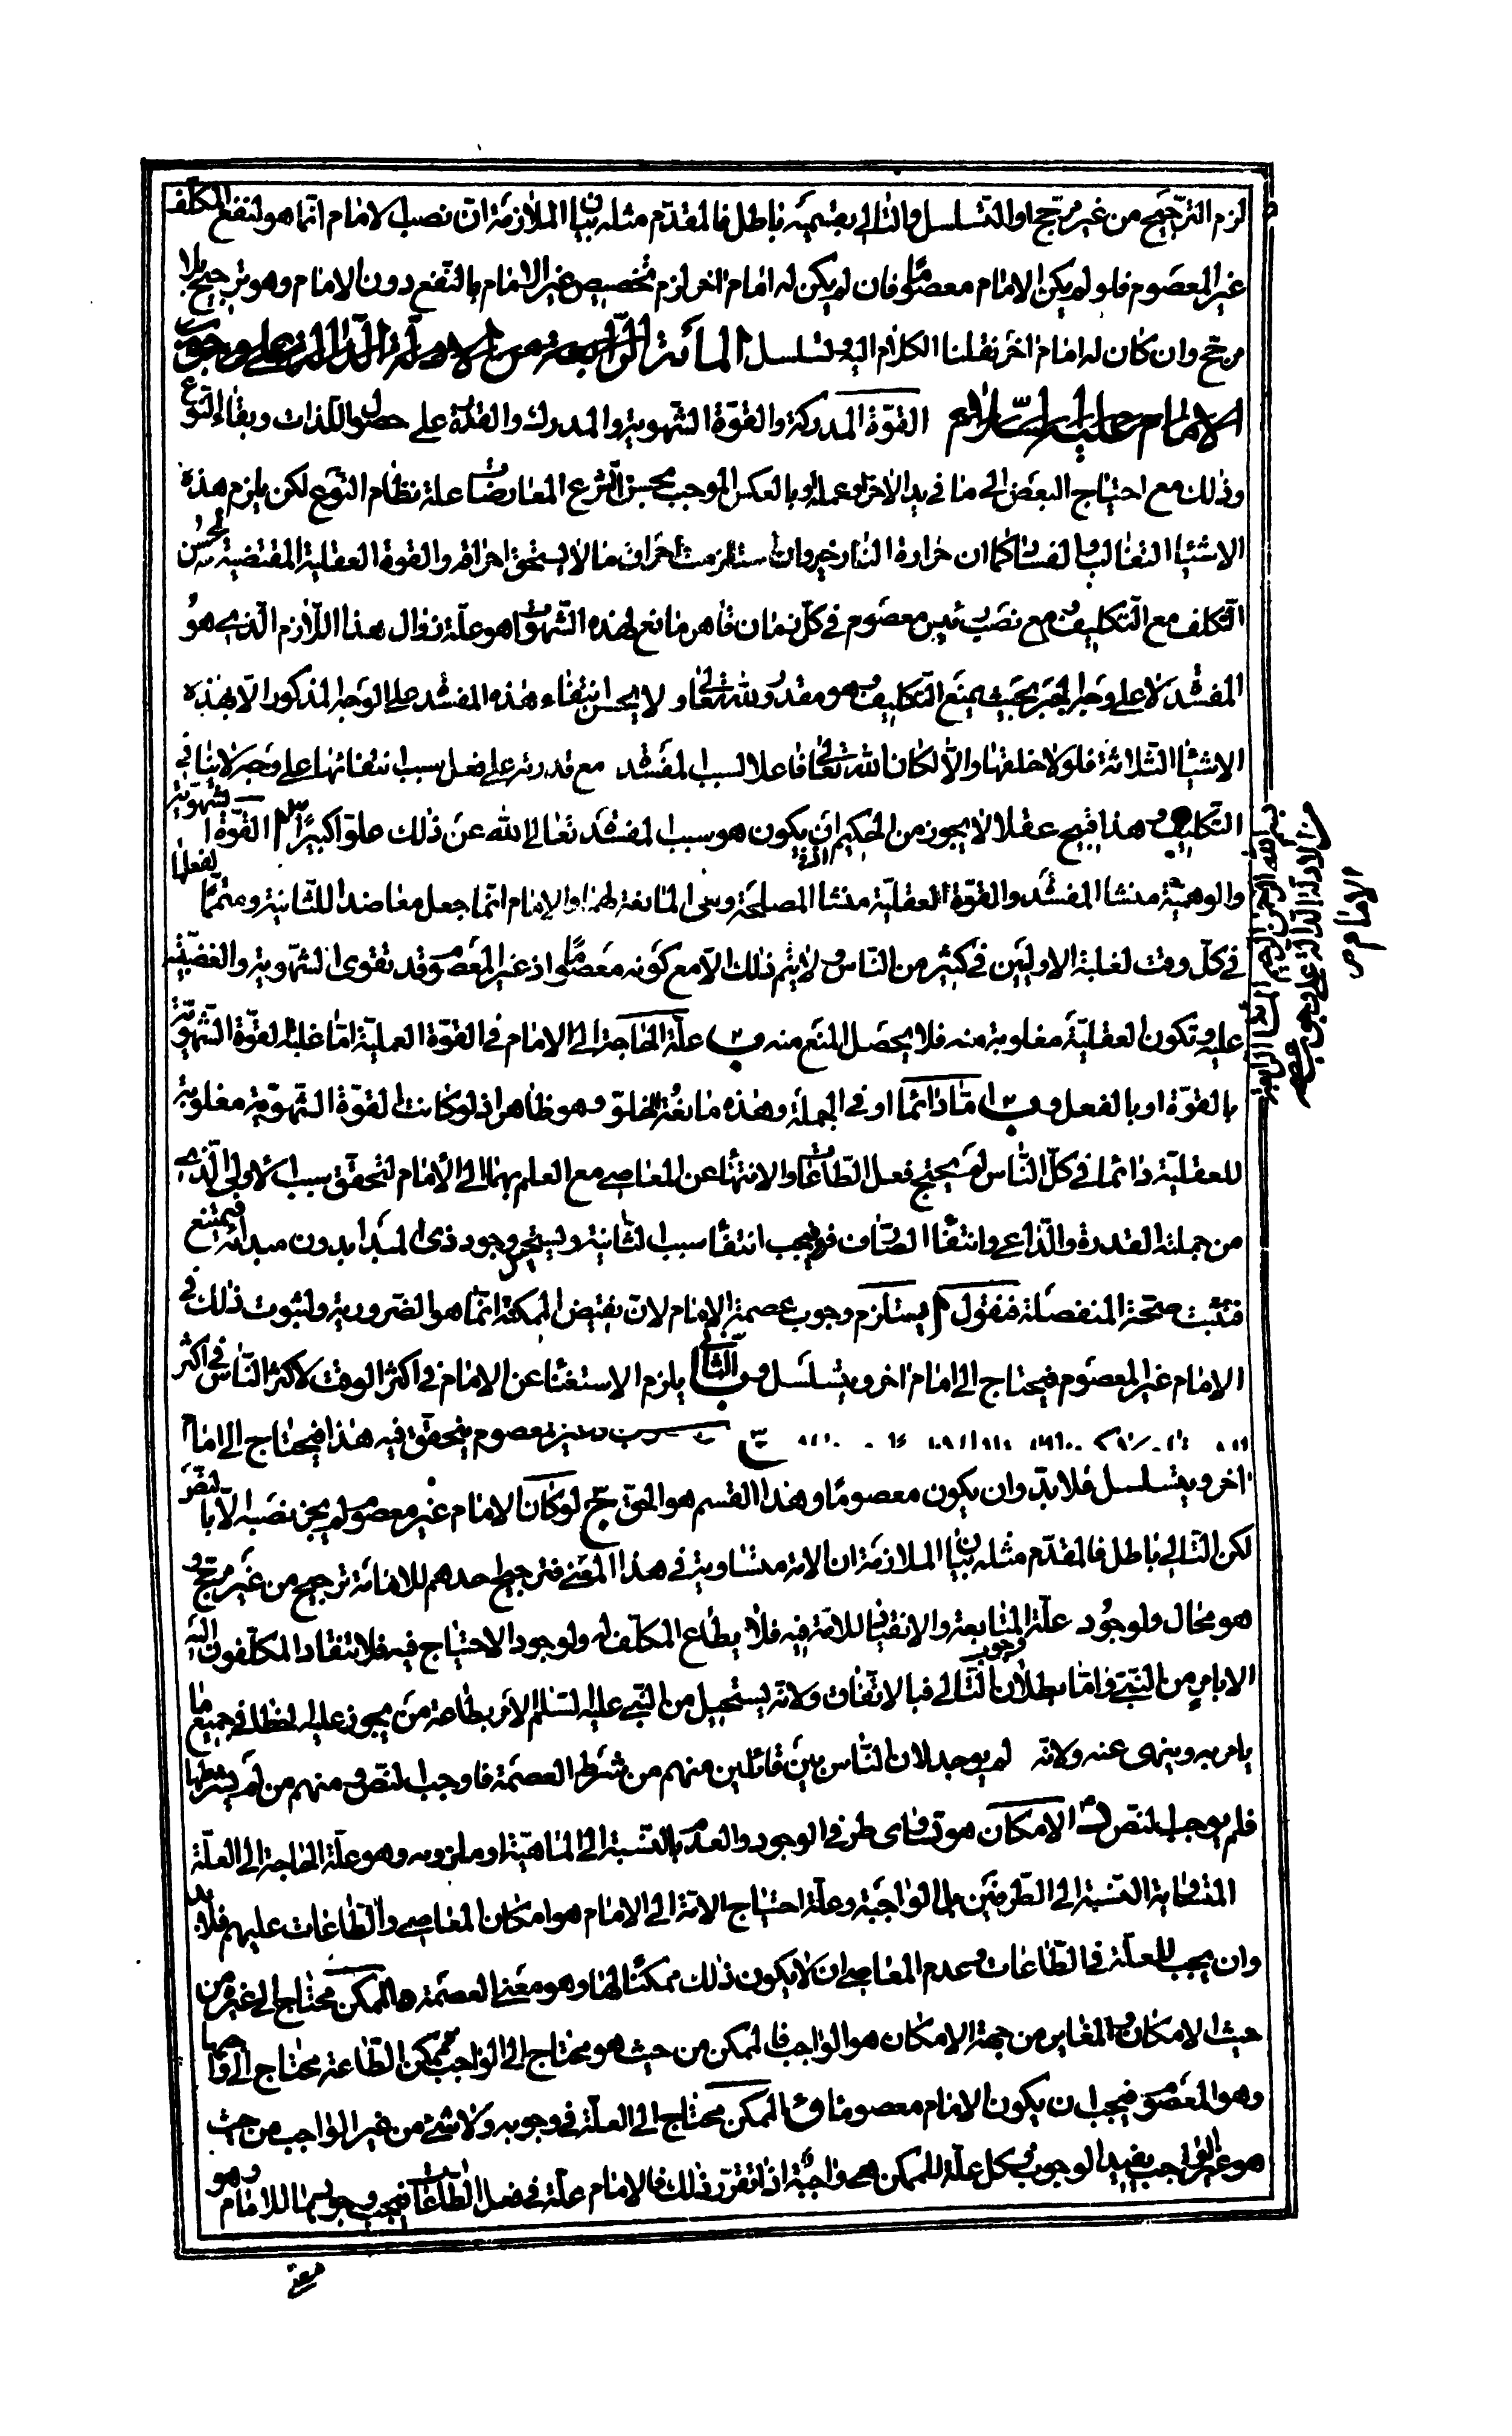 لزم الترجيح من غير مرجح او التسلسل والتالى بقسميه باطل فالمقدم مثله بيان الملازمة ان نصب الامام انما هو لنفع المكلف
غير المعصوم فلو لم يكن الامام معصوما فان لم يكن له امام اخر لزم تخصيص غير الامام بالنفع دون الامام وهو ترجيح بلا
مرجح وان كان له امام اخر نقلنا الكلام اليه وتسلسل المائة الرابعة من الادلة الدالة على وجوب
الامام عليه السلام القوة المدركة والقوة الشهوية والمدرك والقدرة على حصول اللذات وبقاء النوع
وذلك مع احتياج البعض الى ما فى يد الاخر او عمله وبالعكس الموجب بحسن الشرع المعارضات علة نظام النوع لكن يلزم هذه
الاشياء التغالب والفساد كما ان حرارة النار خير وان استلزمت احراق ما لا يستحق احراقه والقوة العقلية المقتضية لحسن
التكلف مع التكليف مع نصب رئيس معصوم فى كل زمان قاهر مانع لهذه الشهوات هو علة زوال هذا اللازم الذى هو
المفسد لا على وجه الجبر بحيث يمنع التكليف وهو مقدور لله تعالى ولا يحسن انتفاء هذه المفسد على الوجه المذكور الا بهذه
الاشياء الثلاثة فلولا خلقها والا لكان الله تعالى فاعلا لسبب المفسد مع قدرته على فعل سبب انتفائها على وجه لا ينافى
التكليف وهذا قبيح عقلا لا يجوز من الحكيم ان يكون هو سبب المفسد تعالى الله عن ذلك علوا كبيرا القوة الشهوية
والوهمية منشا المفسد والقوة العقلية منشا المصلحة وهى المانعة لهما والامام انما جعل معاضدا للثانية ومتمما لفعلها
فى كل وقت لغلبة الاوليين فى كثير من الناس ولا يتم ذلك الا مع كونه معصوما اذ غير المعصوم قد تقوى الشهوية والغضبية
عليه وتكون العقلية مغلوبة منه فلا يحصل المنع منه ب علة الحاجة الى الامام فى القوة العملية اما غلبة القوة الشهوية
بالقوة او بالفعل و اما دائما او فى الجملة وهذه مانعة الخلو وهو ظاهر اذ لو كانت القوة الشهوية مغلوبة
للعقلية دائما فى كل الناس لم يحتج فعل الطاعات والانتهاء عن المعاصى مع العلم بهما الى الامام لتحقق سبب الاولى الذى
من جملته القدرة والداعى وانتفاء الصارف فيجب انتفاء سبب الثانية ويستحيل وجود ذى المبدا بدون مبدائه فيمتنع
فثبت صحة المنفصلة فنقول يستلزم وجوب عصمة الامام لان نقيض الممكنة انما هو الضرورية ولثبوت ذلك فى
الامام غير المعصوم فيحتاج الى امام اخر ويتسلسل و الثانى يلزم الاستغناء عن الامام فى اكثر الوقت لاكثر الناس فى اكثر
معصوم يتحقق فيه هذا فيحتاج الى امام
اخر ويتسلسل فلا بد وان يكون معصوما وهذا القسم هو الحق ج لو كان الامام غير معصوم لم يجز نصبه الا بالنص
لكن التالى باطل فالمقدم مثله بيان الملازمة ان الامة متساوية فى هذا المعنى فترجيح احدهم للامامة ترجيح من غير مرجح و
هو محال ولوجود علة المتابعة والانقياد للامة فيه فلا يطاع المكلف له ولوجود الاحتياج فيه فلا تنقاد المكلفون اليه
الا بامر من النبى واما بطلان التالى فبالاتفاق ولانه يستحيل من النبى عليه السلم الامر بطاعة من يجوز عليه الخطا فى جميع ما
يامر به وينهى عنه ولانه لم يوجد لان الناس بين قائلين منهم من شرط العصمة فاوجب النص ومنهم من لم يشترطها
فلم يوجب النص الامكان هو تساوى طرفى الوجود والعدم بالنسبة الى الماهية او ملزومه وهو علة الحاجة الى العلة
المتساوية النسبة الى الطرفين بل الواجبة وعلة احتياج الامة الى الامام هو امكان المعاصى والطاعات عليهم فلا بد
وان يجب للعلة فى الطاعات وعدم المعاصى ان لا يكون ذلك ممكنا لها وهو معنى العصمة الممكن محتاج الى غيره من
حيث الامكان والمغاير من جهة الامكان هو الواجب فالممكن من حيث هو محتاج الى الواجب فممكن الطاعة محتاج الى واجبها
وهو المعصوم فيجب ان يكون الامام معصوما الممكن محتاج الى العلة فى وجوبه ولا شئ من غير الواجب من حيث
هو غير الواجب يفيد الوجوب وكل علة للممكن هى واجبة اذا تقرر ذلك فالامام علة فى فعل الطاعات فيجب وجوبها للامام وهو
معنى
بسم الله الرحمن الرحيم المائة الرابعة
من الادلة الدالة على وجوب عصمة
الامام ص